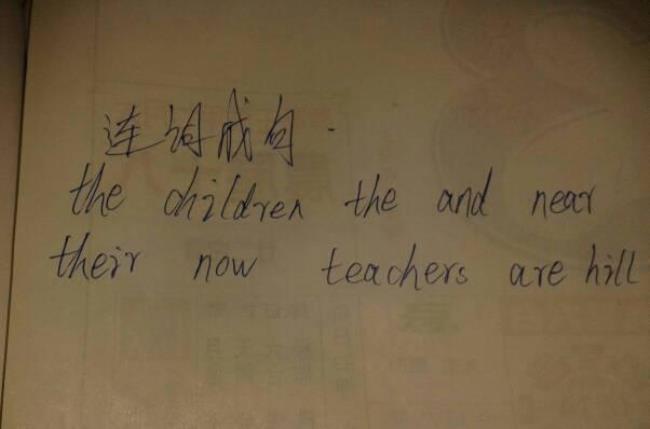 连词成句.
the children the and near
their now teachers are hill